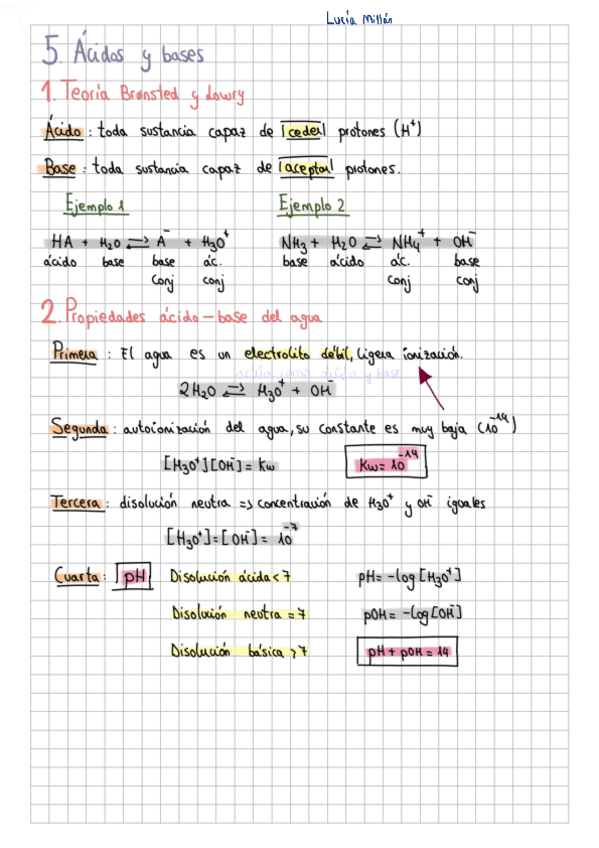 Lucía Millán
5. Ácidos y bases
1. Teoría Brønsted y Lowry
Ácido : toda sustancia capaz de ceder protones (H⁺)
Base : toda sustancia capaz de aceptar protones.
Ejemplo 1 Ejemplo 2
HA + H₂O ⇌ A⁻ + H₃O⁺ NH₃ + H₂O ⇌ NH₄⁺ + OH⁻
ácido base base ác. base ácido ác. base
conj conj conj conj
2. Propiedades ácido-base del agua
Primera : El agua es un electrolito débil, ligera ionización.
actúa como ácido y base
2H₂O ⇌ H₃O⁺ + OH⁻
Segunda : autoionización del agua, su constante es muy baja (10⁻¹⁴)
[H₃O⁺][OH⁻] = Kw Kw = 10⁻¹⁴
Tercera : disolución neutra => concentración de H₃O⁺ y OH⁻ iguales
[H₃O⁺] = [OH⁻] = 10⁻⁷
Cuarta : pH Disolución ácida < 7 pH = -log [H₃O⁺]
Disolución neutra = 7 pOH = -log [OH⁻]
Disolución básica > 7 pH + pOH = 14